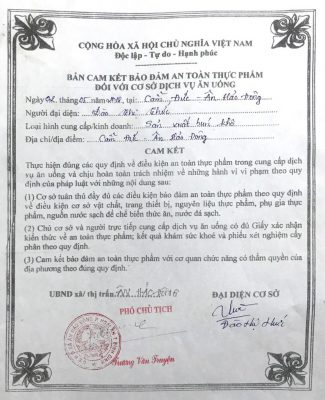 CỘNG HÒA XÃ HỘI CHỦ NGHĨA VIỆT NAM
Độc lập - Tự do - Hạnh phúc
BẢN CAM KẾT BẢO ĐẢM AN TOÀN THỰC PHẨM
ĐỐI VỚI CƠ SỞ DỊCH VỤ ĂN UỐNG
Ngày 02 tháng 05 năm 2018, tại
Người đại diện: Đào Thị Thuý
Loại hình cung cấp/kinh doanh: Sản xuất bún khô
Địa chỉ/địa điểm:
CAM KẾT
Thực hiện đúng các quy định về điều kiện an toàn thực phẩm trong cung cấp dịch
vụ ăn uống và chịu hoàn toàn trách nhiệm về những hành vi vi phạm theo quy định
của pháp luật với những nội dung sau:
(1) Cơ sở tuân thủ đầy đủ các điều kiện bảo đảm an toàn thực phẩm theo quy định
về điều kiện cơ sở vật chất, trang thiết bị, nguyên liệu thực phẩm, phụ gia thực
phẩm, nguồn nước sạch để chế biến thức ăn, nước đá sạch.
(2) Chủ cơ sở và người trực tiếp cung cấp dịch vụ ăn uống có đủ Giấy xác nhận
kiến thức về an toàn thực phẩm; kết quả khám sức khoẻ và phiếu xét nghiệm cấy
phân theo quy định.
(3) Cam kết bảo đảm an toàn thực phẩm với cơ quan chức năng có thẩm quyền của
địa phương theo đúng quy định.
UBND xã/ thị trấn
ĐẠI DIỆN CƠ SỞ
PHÓ CHỦ TỊCH
Trương Văn Truyện
Đào Thị Thuý